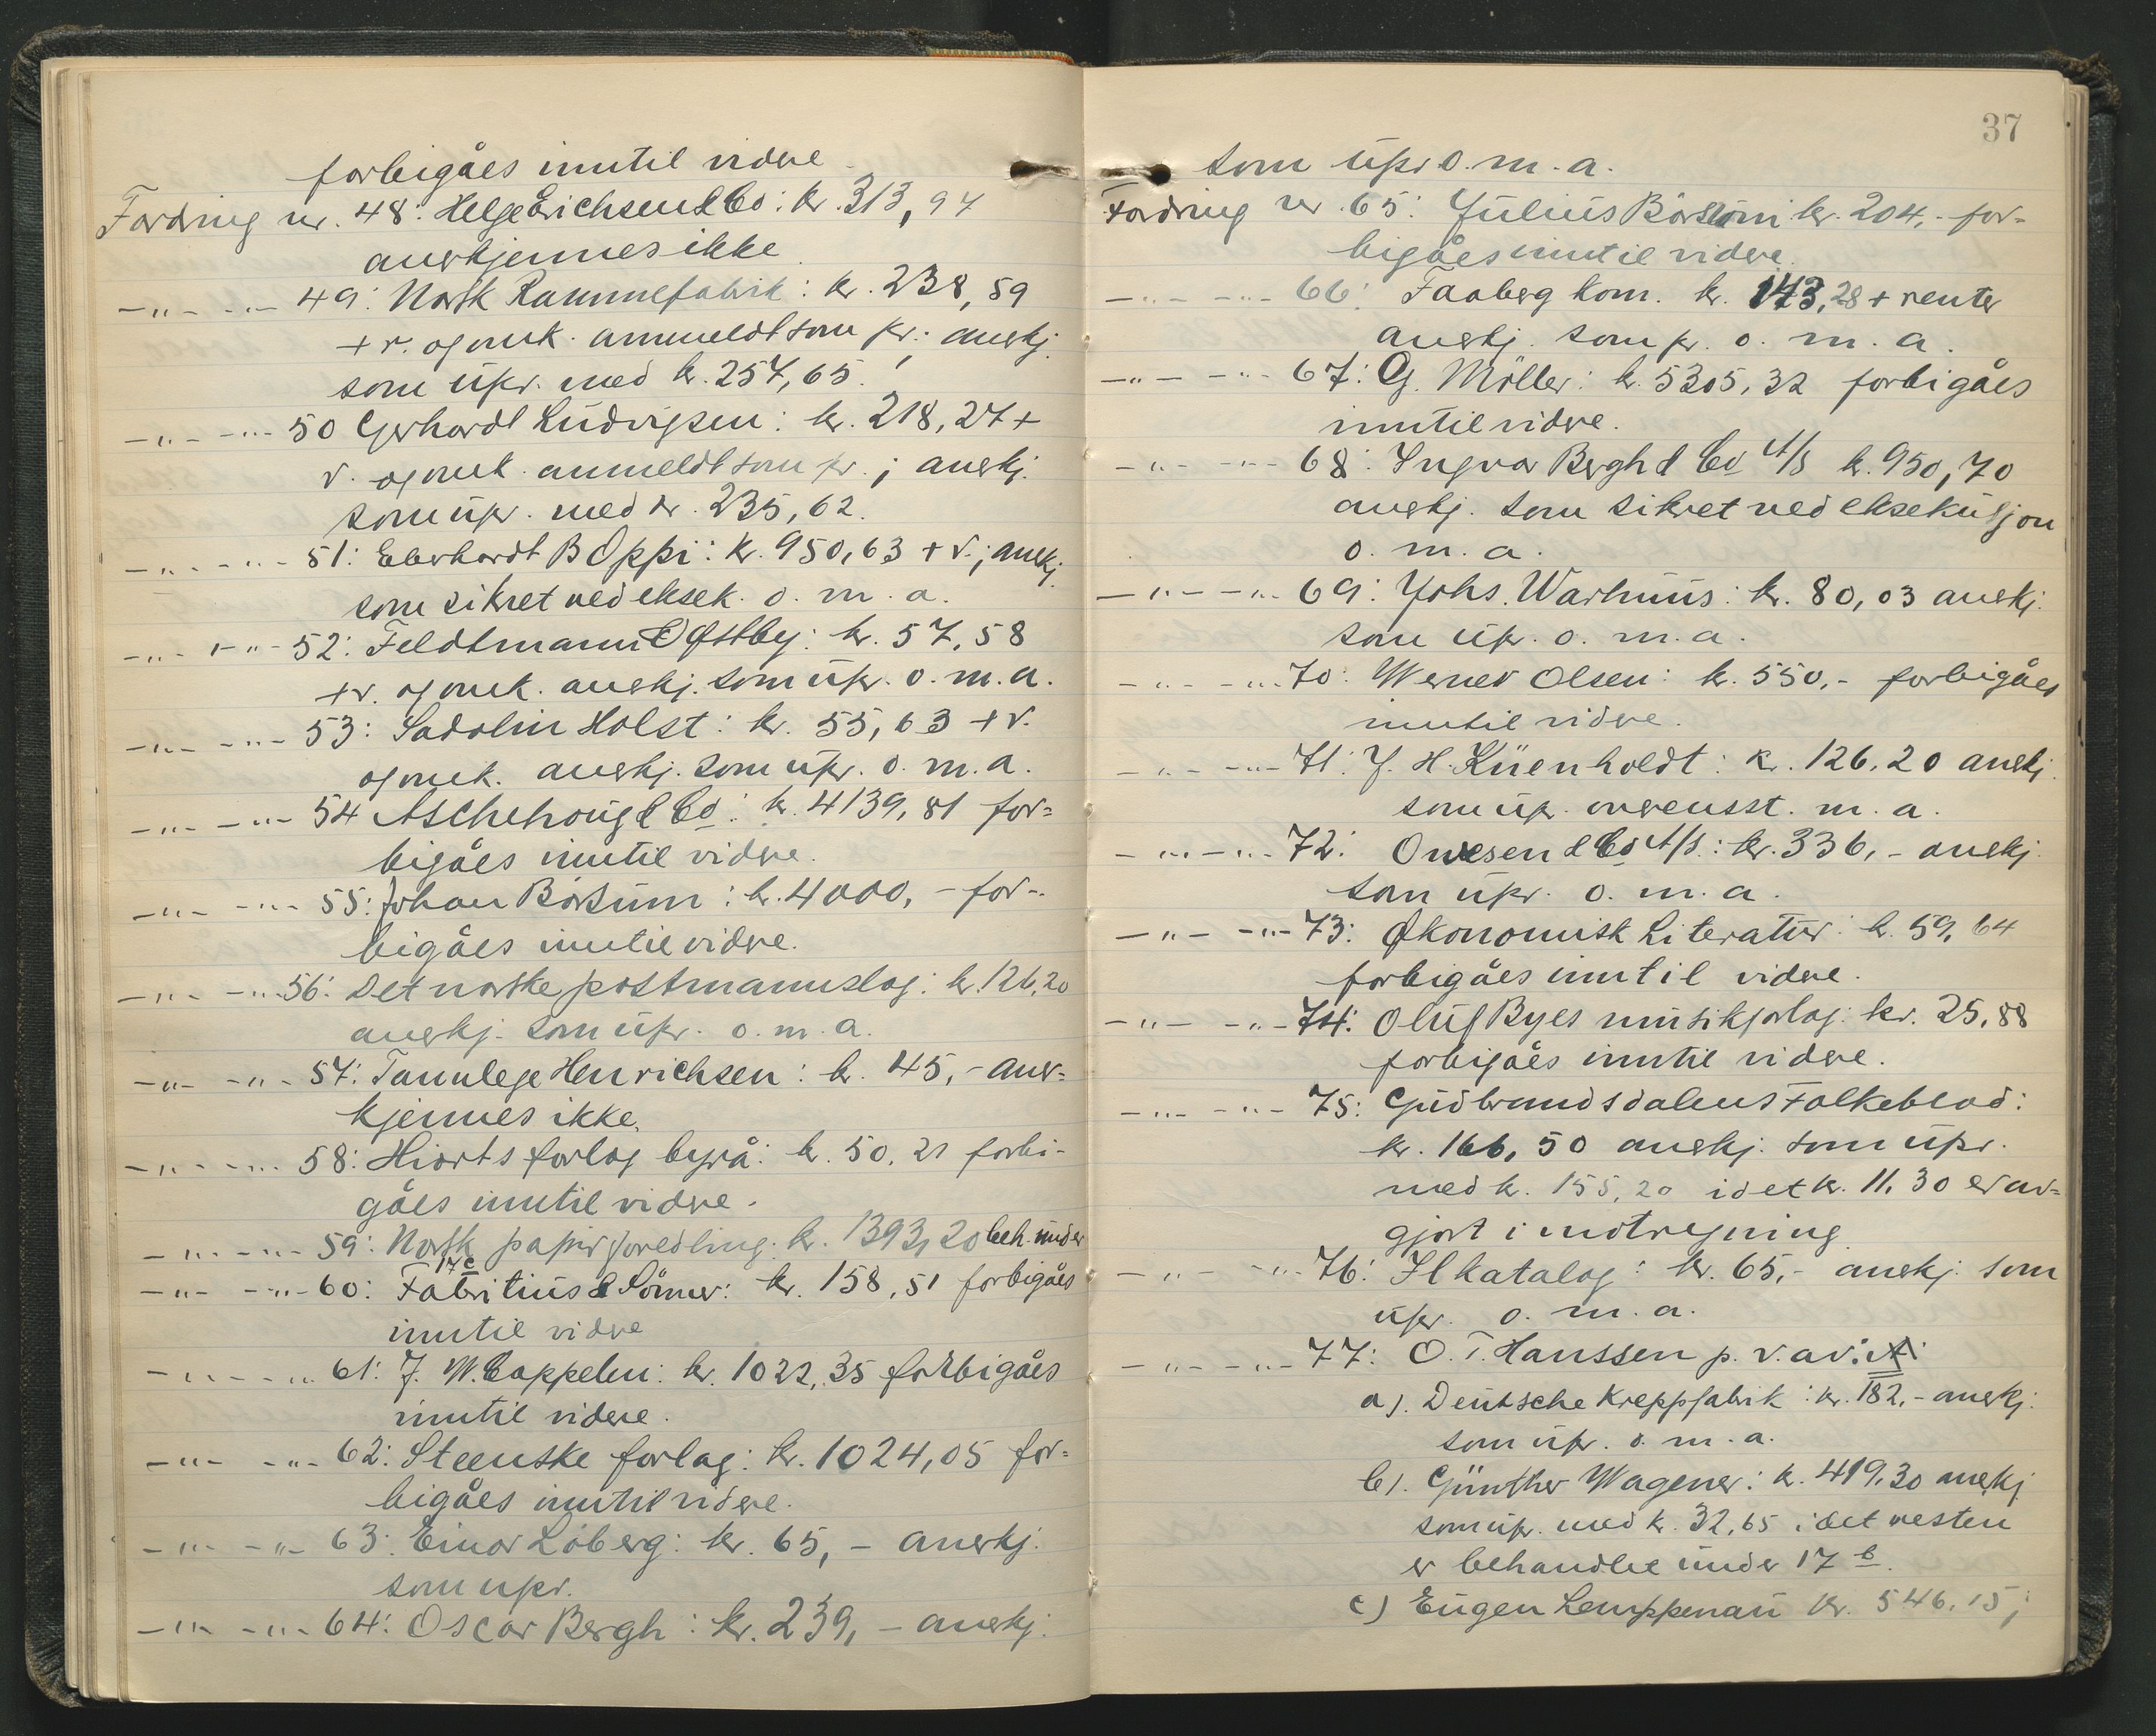 forbigåes inntil videre.
Fordring nr. 48: Helge Erichsen & Co: kr. 313,94
anerkjennes ikke.
—„— —„— 49: Norsk Rammefabrik: kr. 238,59
+ r. og omk. anmeldt som pr.; anerkj.
som upr. med kr. 257,65.
—„— —„— 50 Gerhardt Ludvigsen: kr. 218,27 +
r. og omk. anmeldt som pr.; anerkj.
som upr. med kr. 235,62.
—„— —„— 51: Eberhardt B Oppi: kr. 950,63 + r.; anerkj.
som sikret ved eksek. o. m. a.
—„— —„— 52: Feldtmann & Østby: kr. 57,58
+ r. og omk. anerkj. som upr. o. m. a.
—„— —„— 53: Sadolin Holst: kr. 55,63 + r.
og omk. anerkj. som upr. o. m. a.
—„— —„— 54 Aschehoug & Co: kr. 4139,81 for=
bigåes inntil videre.
—„— —„— 55: Johan Börsum: kr. 4000,- for-
bigåes inntil videre.
—„— —„— 56: Det norske postmannslag: kr. 126,20
anerkj. som upr. o. m. a.
—„— —„— 57: Tannlege Henrichsen: kr. 45,- aner=
kjennes ikke.
—„— —„— 58: Hiorts forlag byrå: kr. 50,21 forbi-
gåes inntil videre.
—„— —„— 59: Norsk papirforedling: kr. 1393,20 beh. under
17 c
—„— —„— 60: Fabritius & Sönner: kr. 158,51 forbigåes
inntil videre
—„— —„— 61: J. W. Cappelen: kr. 1022,35 forbigåes
inntil videre.
—„— —„— 62: Steenske forlag: kr. 1024,05 for=
bigåes inntil videre.
—„— —„— 63: Einar Löberg: kr. 65,- anerkj.
som upr.
—„— —„— 64: Oscar Bergh: kr. 239,- anerkj.
37
som upr o. m. a.
Fordring nr. 65: Julius Börsum kr. 204,- for=
bigåes inntil videre.
—„— —„— 66: Faaberg kom. kr. 143,28 + renter
anerkj. som pr. o. m. a.
—„— —„— 67: G. Möller: kr. 5305,32 forbigåes
inntil videre.
—„— —„— 68: Ingvar Bergh & Co A/S kr. 950,70
anerkj. som sikret ved eksekusjon
o. m. a.
—„— —„— 69: Johs. Warhuus: kr. 80,03 anerkj.
som upr. o. m. a.
—„— —„— 70: Werner Olsen: kr. 550,- forbigåes
inntil videre.
—„— —„— 71: J. H. Küenholdt: kr. 126,20 anerkj.
som upr. overensst. m. a.
—„— —„— 72: Owesen & Co A/S.: kr. 336,- anerkj.
som upr. o. m. a.
—„— —„— 73: Økonomisk Literatur: kr. 59,64
forbigåes inntil videre.
—„— —„— 74: Oluf Byes musikforlag: kr. 25,88
forbigåes inntil videre.
—„— —„— 75: Gudbrandsdalens Folkeblad:
kr. 166,50 anerkj. som upr.
med kr. 155,20 idet kr. 11,30 er av=
gjort i motregning
—„— —„— 76: Il katalog: kr. 65,- anerkj. som
upr. o. m. a.
—„— —„— 77: O. T. Hanssen p. v. av:
a). Deutsche Kreppfabrik: kr. 182,- anerkj.
som upr. o. m. a.
b). Günther Wagener: kr. 419,30 anerkj.
som upr. med kr. 32,65 idet resten
er behandlet under 17 b.
c) Eugen Lemppenau kr. 546,15;